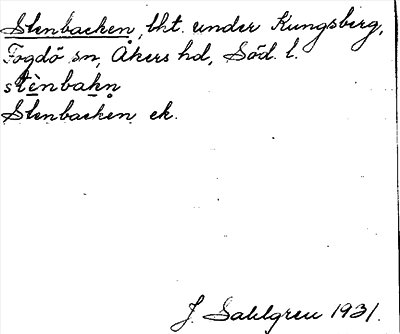 Stenbacken, lht. under Kungsberg,
Fogdö sn, Åkers hd, Söd. l.
stènbakn̥
Stenbacken ek.
J. Sahlgren 1931.